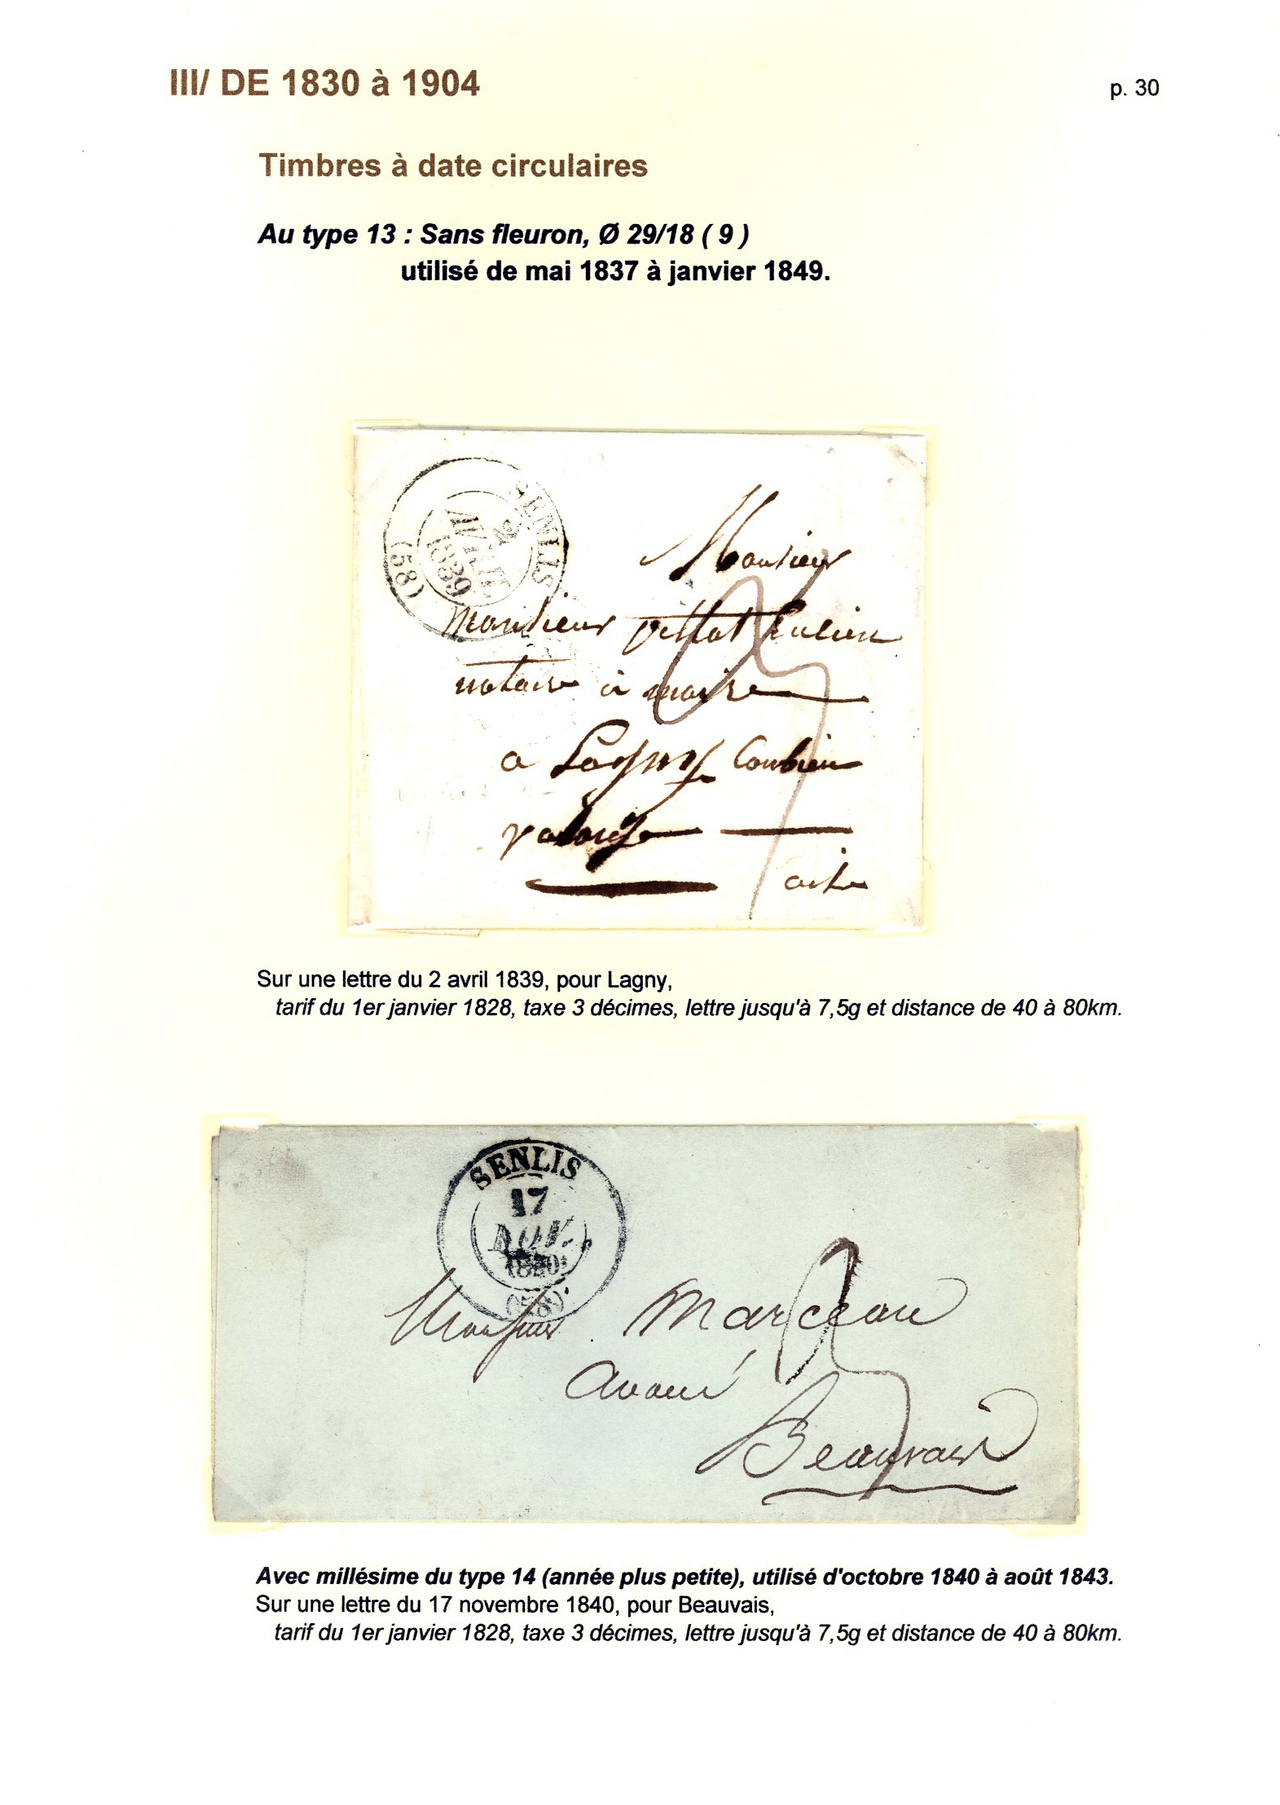 III/ DE 1830 à 1904
p. 30
Timbres à date circulaires
Au type 13 : Sans fleuron, Ø 29/18 ( 9 )
utilisé de mai 1837 à janvier 1849.
SENLIS
2
AVRIL
1839
(58)
Monsieur
Monsieur
notaire à
a Lagny
3
Sur une lettre du 2 avril 1839, pour Lagny,
tarif du 1er janvier 1828, taxe 3 décimes, lettre jusqu'à 7,5g et distance de 40 à 80km.
SENLIS
17
NOV.
(1840)
(58)
Monsieur Marceau
Avoué
Beauvais
3
Avec millésime du type 14 (année plus petite), utilisé d'octobre 1840 à août 1843.
Sur une lettre du 17 novembre 1840, pour Beauvais,
tarif du 1er janvier 1828, taxe 3 décimes, lettre jusqu'à 7,5g et distance de 40 à 80km.